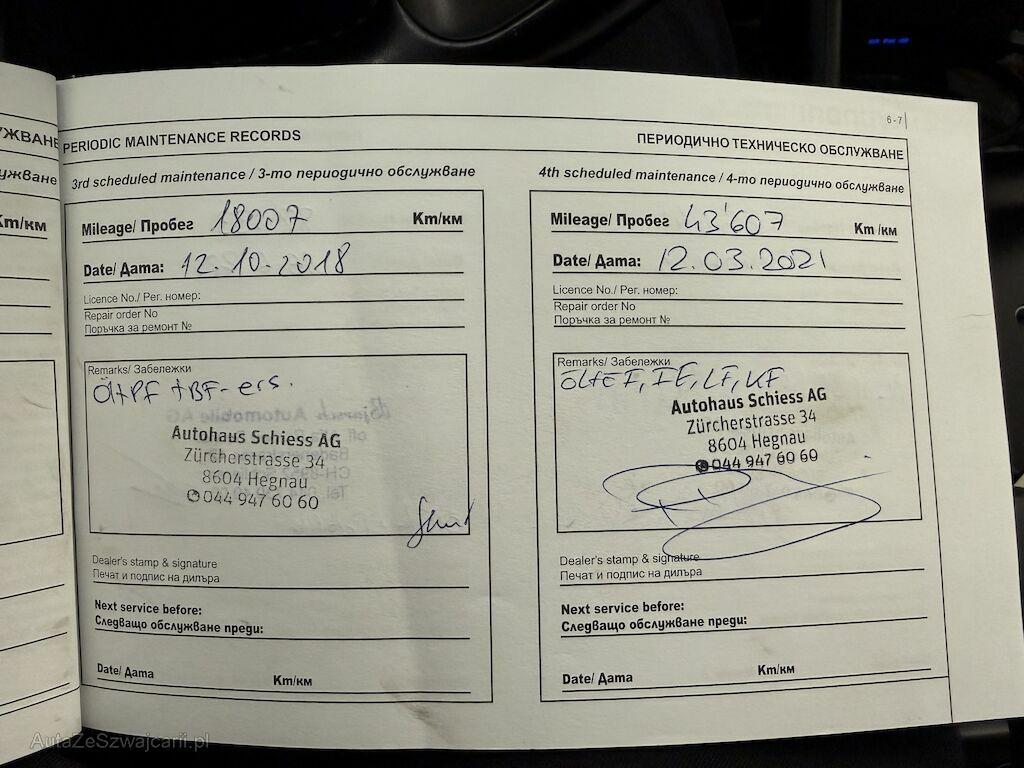 6-7
PERIODIC MAINTENANCE RECORDS
ПЕРИОДИЧНО ТЕХНИЧЕСКО ОБСЛУЖВАНЕ
ужване
Km/км
3rd scheduled maintenance / 3-то периодично обслужване
Mileage/ Пробег 18007 Km/км
Date/ Дата: 12.10.2018
Licence No./ Рег. номер:
Repair order No
Поръчка за ремонт №
Remarks/ Забележки
Öl+PF +BF-ers.
Autohaus Schiess AG
Zürcherstrasse 34
8604 Hegnau
044 947 60 60
Dealer's stamp & signature
Печат и подпис на дилъра
Next service before:
Следващо обслужване преди:
Date/ Дата Km/км
4th scheduled maintenance / 4-то периодично обслужване
Mileage/ Пробег 43'607 Km /км
Date/ Дата: 12.03.2021
Licence No./ Рег. номер:
Repair order No
Поръчка за ремонт №
Remarks/ Забележки
Autohaus Schiess AG
Zürcherstrasse 34
8604 Hegnau
044 947 60 60
Dealer's stamp & signature
Печат и подпис на дилъра
Next service before:
Следващо обслужване преди:
Date/ Дата Km/км
AutaZeSzwajcarii.pl